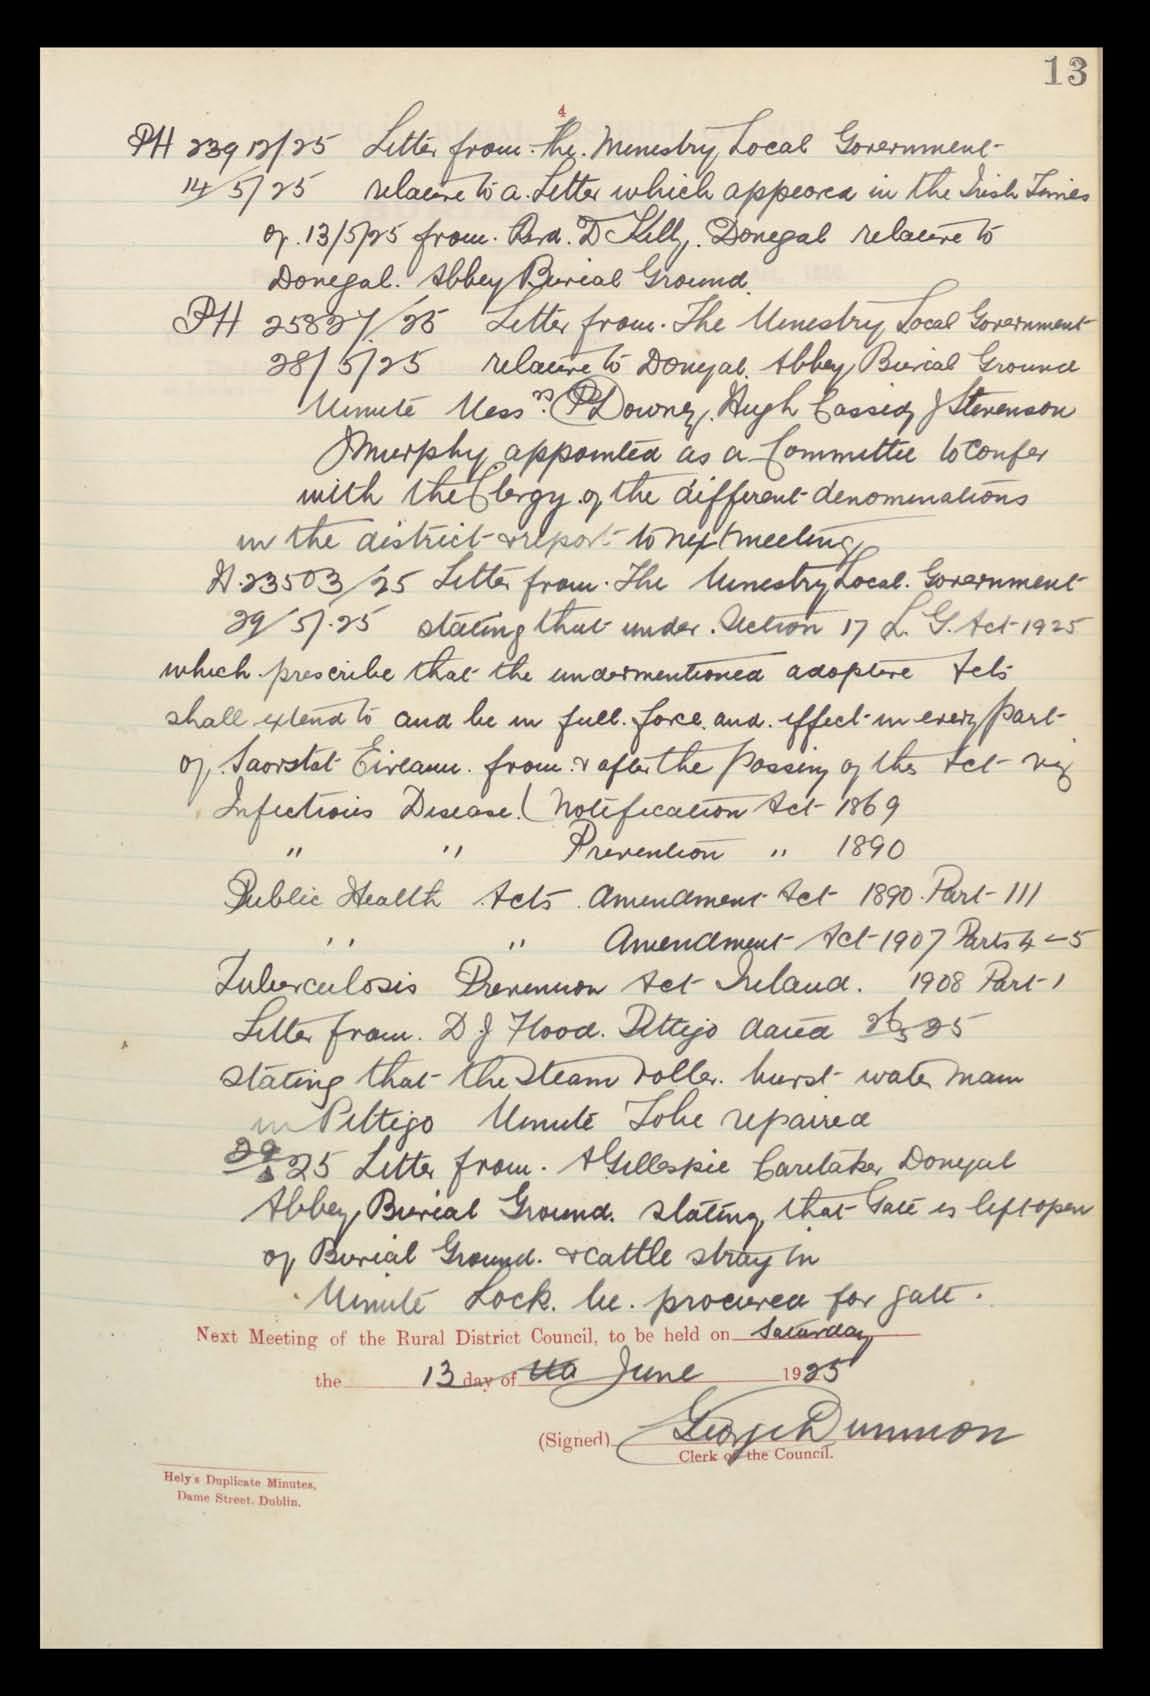 13
4
PH 23912/25 Letter from the Ministry Local Government
14/5/25 relative to a Letter which appeared in the Irish Times
of 13/5/25 from D Kelly. Donegal relative to
Donegal. Abbey Burial Ground.
PH 25827/25 Letter from. The Ministry Local Government
28/5/25 relative to Donegal. Abbey Burial Ground
Minute Messrs. P Downey, Hugh Cassidy J Stevenson
J Murphy appointed as a Committee to confer
with the Clergy of the different denominations
in the district & report to next meeting
H. 23503/25 Letter from. The Ministry Local. Government
29/5/.25 stating that under. Section 17 L. G. Act 1925
which prescribe that the undermentioned adoptive Acts
shall extend to and be in full. force. and. effect in every part
of. Saorstat Eireann. from. & after the passing of the Act viz
Infectious Disease. (Notification Act 1869
" " Prevention " 1890
Public Health Acts Amendment Act 1890. Part III
" " Amendment Act 1907 Parts 4 - 5
Tuberculosis Prevention Act Ireland. 1908 Part 1
Letter from. D J Flood. Pettigo dated 26/5 25
stating that the steam roller. burst water main
in Pettigo Minute To be repaired
29/5 25 Letter from. A Gillespie Caretaker Donegal
Abbey Burial Ground. stating that Gate is left open
of Burial Ground. & cattle stray in
Minute Lock. be. procured for gate.
Next Meeting of the Rural District Council, to be held on Saturday
the 13 day of June 1925
(Signed) George Dunnion
Clerk of the Council.
Hely's Duplicate Minutes,
Dame Street, Dublin.